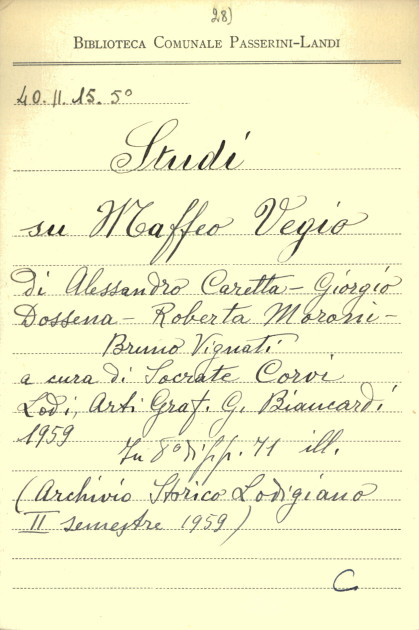 28)
BIBLIOTECA COMUNALE PASSERINI-LANDI
40. II. 15. 5°
Studi
su Maffeo Vegio
di Alessandro Caretta - Giorgio
Dossena - Roberta Moroni -
Bruno Vignati
a cura di Socrate Corvi
Lodi, Arti Graf. G. Biancardi
1959
In 8° di pp. 71 ill.
(Archivio Storico Lodigiano
II semestre 1959)
C